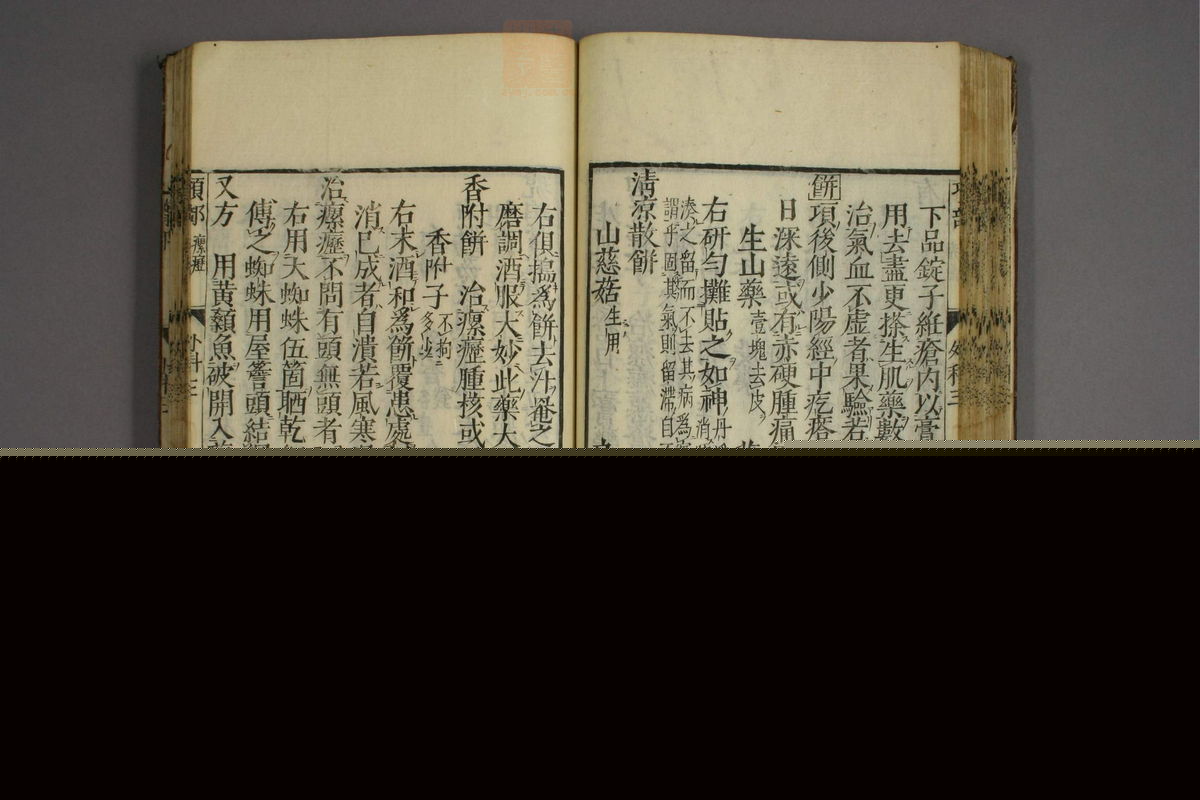 下品錠子紝瘡內以膏
用去盡更搽生肌藥數
治氣血不虛者果驗若
餅項後側少陽經中疙瘩
日深遠或有赤硬腫痛
生山藥壹塊去皮
右研勻攤貼之如神
湊之留而不去其病為
謂乎固其氣則留滯自
清凉散餅
山慈菇生用
右俱搗為餅去汁
磨調酒服大妙此藥大
香附餅 治瘰癧腫核或
香附子不拘多少
右末酒和為餅覆患處
消已成者自潰若風寒
治瘰癧不問有頭無頭者
右用大蜘蛛伍箇晒乾
傅之蜘蛛用屋簷頭結網
又方 用黃顙魚破開入
項部 瘰癧 外科三